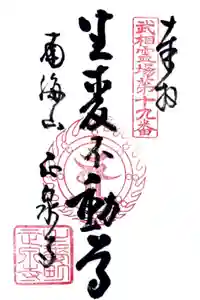 奉拝
武相霊場第十九番
生麦不動尊
南海山 正泉寺